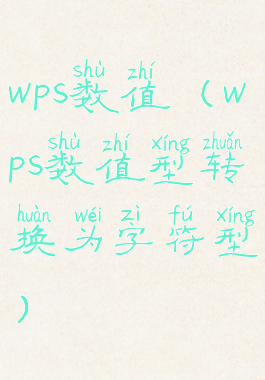 shù zhí
wps数值（w
shù zhí xíng zhuǎn
ps数值型转
huàn wéi zì fú xíng
换为字符型
）